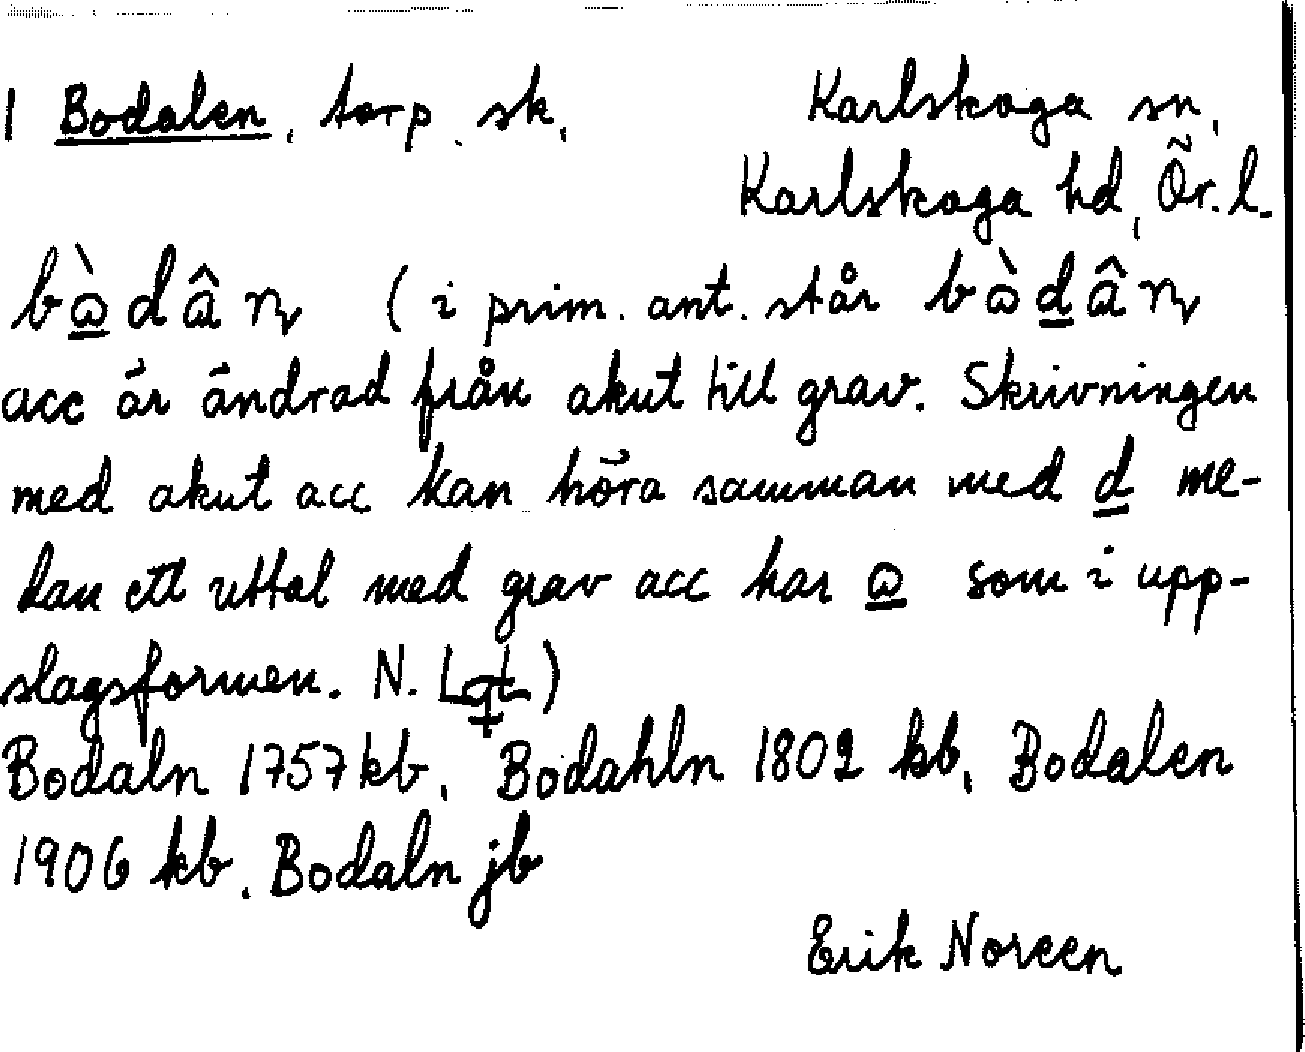 1 Bodalen, torp. sk,
Karlskoga sn,
Karlskoga hd, Ör. l.
bò̲dâņ (i prim. ant. står bòd̲âņ
acc är ändrad från akut till grav. Skrivningen
med akut acc kan höra samman med d̲ me-
dan ett uttal med grav acc har o̲ som i upp-
slagsformen. N. L)
Bodaln 1757 kb, Bodahln 1802 kb, Bodalen
1906 kb. Bodaln jb
Erik Noreen